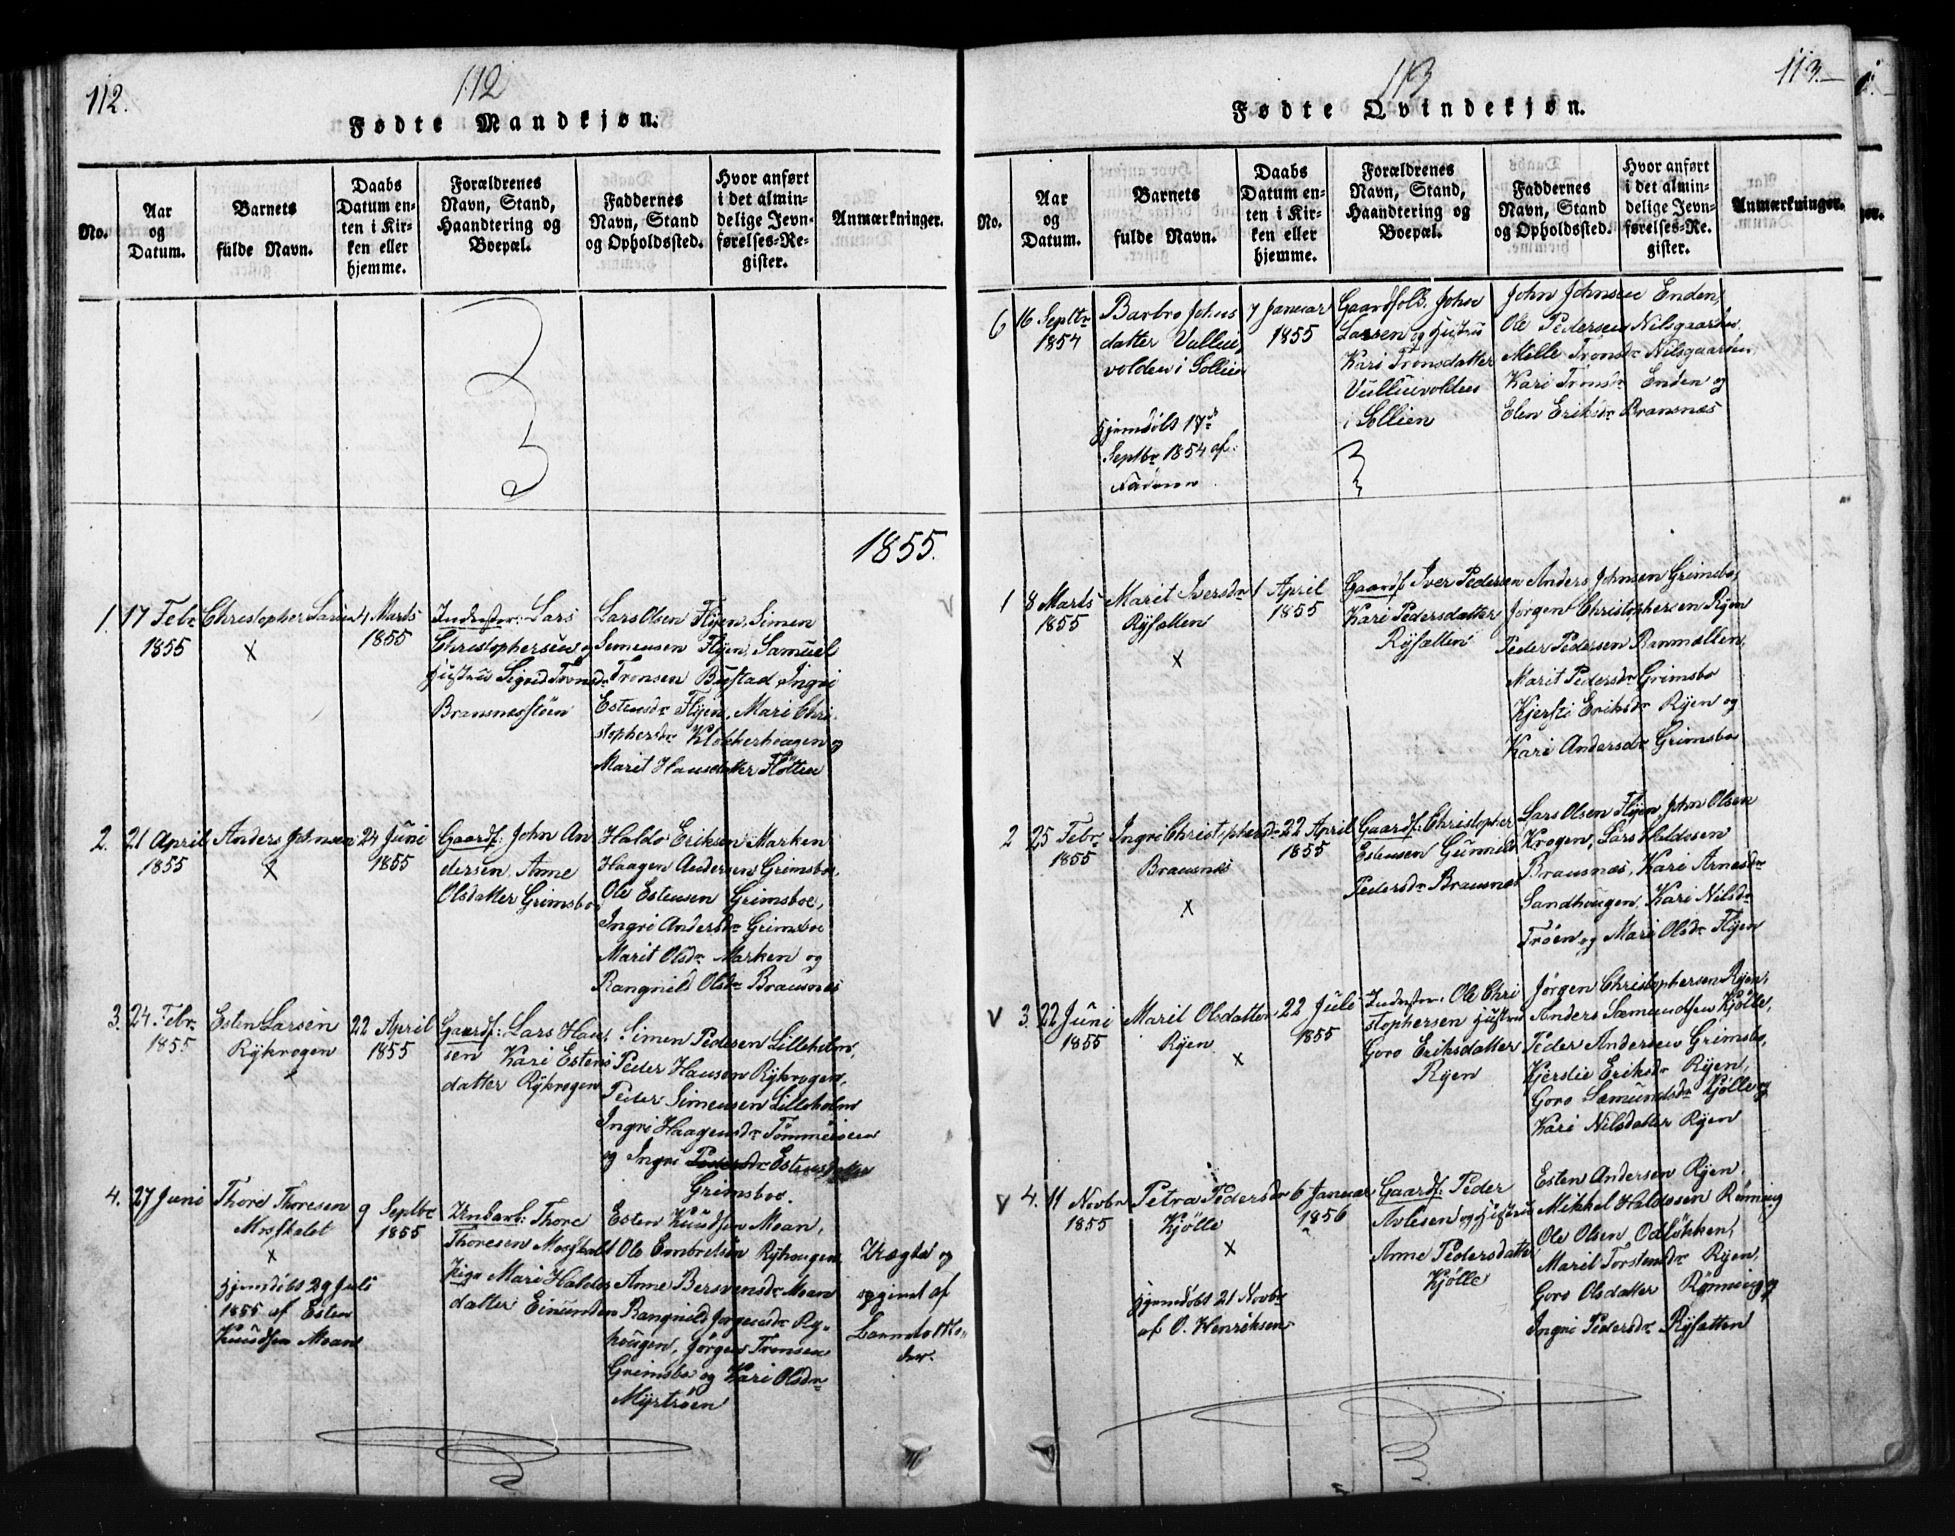 112.
112
Fødte Mandkjøn.
No.
Aar
og
Datum.
Barnets
fulde Navn.
Daabs
Datum en-
ten i Kir-
ken eller
hjemme.
Forældrenes
Navn, Stand,
Haandtering og
Boepæl.
Faddernes
Navn, Stand
og Opholdssted.
Hvor anført
i det almin-
delige Jevn-
førelses-Re-
gister.
Anmærkninger.
1855.
1.
17 Febr
1855
Christopher Larsen
x
4 Marts
1855
Inderster: Lars
Christophersen og
Hustru Sigrid Tronsdr
Bransnesstøen
Lars Olsen Flyen, Simen
Semensen Flyen, Samuel
Tronsen Bustad, Ingri
Estensdr Flyen, Mari Chri
stophersdr Klokkerhaugen og
Marit Hansdatter Flotten
2.
21 April
1855
Anders Johnsen
x
24 Juni
1855
Gaardf: John An
dersen, Anne
Olsdatter Grimsboe
Haldo Eriksen Marken
Haagen Andersen Grimsboe,
Ole Estensen Grimsboe,
Ingri Andersdr Grimsboe
Marit Olsdr Marken og
Rangnild Olsdr Bransnes
3.
24 Febr.
1855
Esten Larsen
Rykrogen
22 April
1855
Gaardf: Lars Han
sen Kari Estens
datter Rykrogen
Simen Pedersen Lilleholm,
Peder Hansen Rykrogen,
Peder Simensen Lilleholm
Ingri Haagensdr Tömmeraen
og Ingri Pedersdr Estensdatter
Grimsboe.
4.
27 Juni
Thore Thoresen
Moskalet
x
Hjemdöbt 29 Juli
1855 af Esten
Knudsen Moan
9 Septbr
1855
Unkarl: Thore
Thoresen Moskalet
Pige Mari Haldos
datter Einunden
Esten Knudsen Moan,
Ole Embretsen Ryhougen
Anne Bersvensdr Moan
Rangnild Jorgensdr Ry-
hougen, Jörgen Tronsen
Grimsbo og Kari Olsdr
Myrtröen
Uægte og
opgivet af
Barnets Mo-
der.
113
113.
Fødte Qvindekjøn.
No.
Aar
og
Datum.
Barnets
fulde Navn.
Daabs
Datum en-
ten i Kir-
ken eller
hjemme.
Forældrenes
Navn, Stand,
Haandtering og
Boepæl.
Faddernes
Navn, Stand
og Opholdssted.
Hvor anført
i det almin-
delige Jevn-
førelses-Re-
gister.
Anmærkninger.
6
16 Septbr
1854
Barbro Johns
datter Vullui
volden i Sollien
Hjemdöbt 17d
Septbr 1854 af
Faderen
7 Januar
1855
Gaardfolk John
Larsen og Hustru
Kari Tronsdatter
Vulluivolden
i Sollien
John Johnsen Enden,
Ole Pedersen Nilsgaarden
Melle Tronsdr Nilsgaarden
Kari Tronsdr Enden og
Elen Eriksdr Bransnes
1
8 Marts
1855
Marit Iversdr
Rysæten
x
1 April
1855
Gaardf Iver Pedersen
Kari Pedersdatter
Rysætten
Anders Johnsen Grimsbo,
Jorgen Christophersen Ryen
Peder Pedersen Ranmælten,
Marit Pedersdr Grimsbo
Kjersti Eriksdr Ryen og
Kari Andersdr Grimsboe
2
25 Febr.
1855
Ingri Christophersdr
Bransnes
x
22 April
1855
Gaardf. Christopher
Estensen Gunnild
Pedersdr Bransnes
Lars Olsen Flyen, John Olsen
Krogen, Lars Haldosen
Bransnes, Kari Arnesdr
Sandhougen, Kari Nilsdr
Tröen og Mari Olsdr Flyen
V
3.
22 Juni
1855
Marit Olsdatter
Ryen
x
22 Juli
1855
Inderster: Ole Chri
stophersen Hustru
Goro Eriksdatter
Ryen
Jörgen Christophersen Ryen,
Anders Sæmundsen Kjölle,
Peder Andersen Grimsbo,
Kjerstie Eriksdr Ryen,
Goro Sæmundsdr Kjölle og
Kari Nilsdatter Ryen
V
4.
11 Novbr
1855
Petra Pedersdr
Kjölle
x
Hjemdöbt 21 Novbr
af O. Henriksen
6 Januar
1856
Gaardf: Peder
Avlesen og Hustru
Anne Pedersdatter
Kjölle
Esten Andersen Ryen,
Mikkel Haldosen Rönning
Ole Olsen Odlökken,
Marit Torstensdr Ryen,
Goro Olsdatter Rönning og
Ingri Pedersdr Rysætten